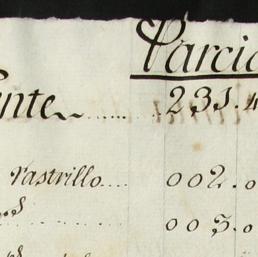 Parcia
ente 231.
rastrillo 002.0
s 003.0